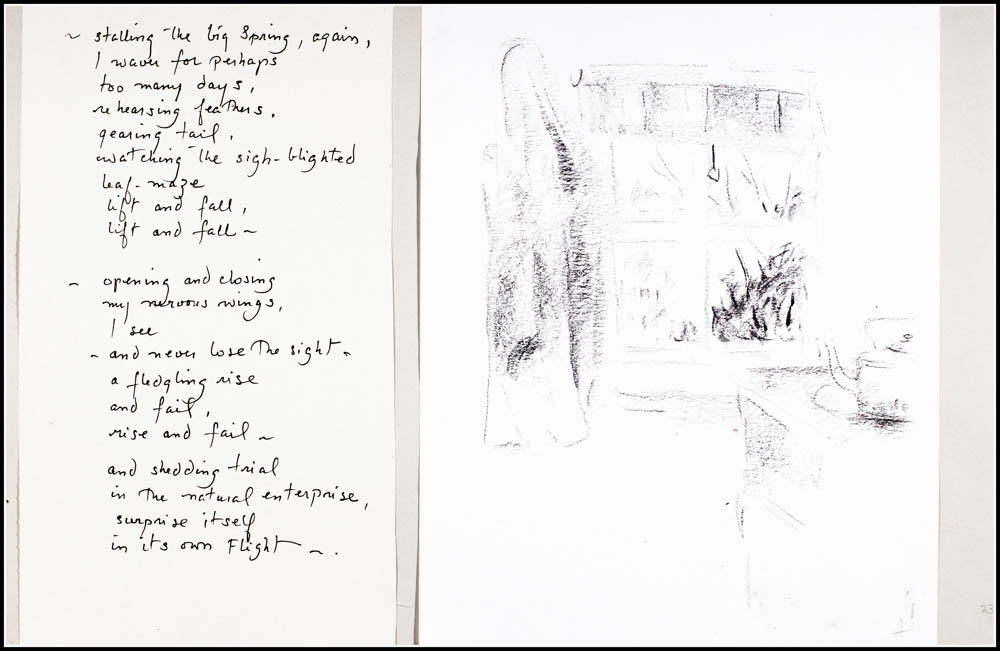 ~ stalling the big Spring, again,
I waver for perhaps
too many days,
rehearsing feathers,
gearing tail,
watching the sigh-blighted
leaf-maze
lift and fall,
lift and fall ~
~ opening and closing
my nervous wings,
I see
~ and never lose the sight ~
a fledgling rise
and fail,
rise and fail ~
and shedding trial
in the natural enterprise,
surprise itself
in its own Flight ~ .
23